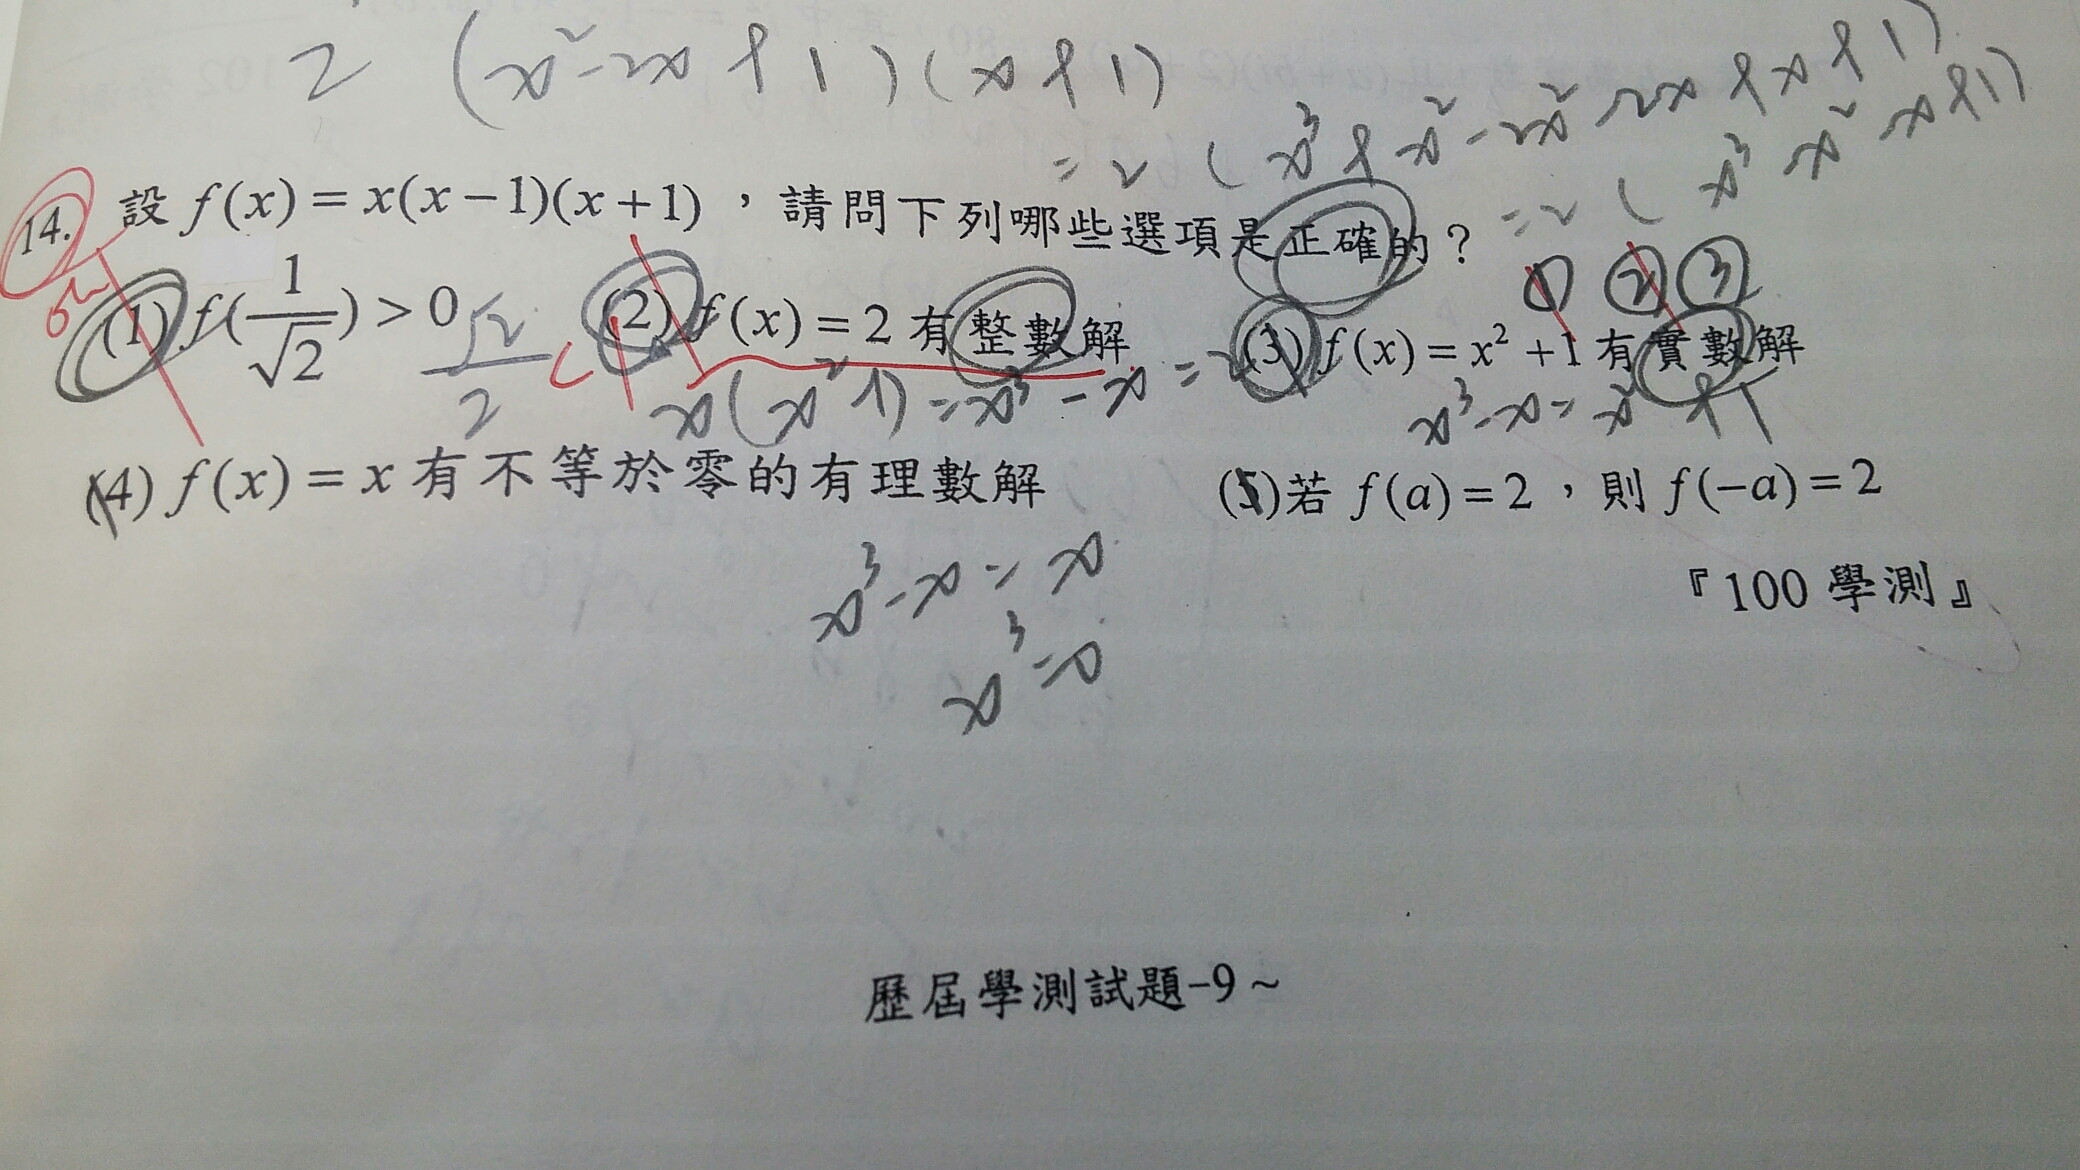 2 (x²-2x+1)(x+1)
=2(x³+x²-2x²-2x+x+1)
=2(x³-x²-x+1)
14. 設 f(x) = x(x-1)(x+1)，請問下列哪些選項是正確的？
① ② ③
(1) f(1/√2) > 0 (2) f(x) = 2 有整數解 (3) f(x) = x² + 1 有實數解
√2/2 x(x²-1)=x³-x=2 x³-x=x²+1
(4) f(x) = x 有不等於零的有理數解 (5)若 f(a) = 2，則 f(-a) = 2
『100 學測』
x³-x=x
x³=0
歷屆學測試題-9~